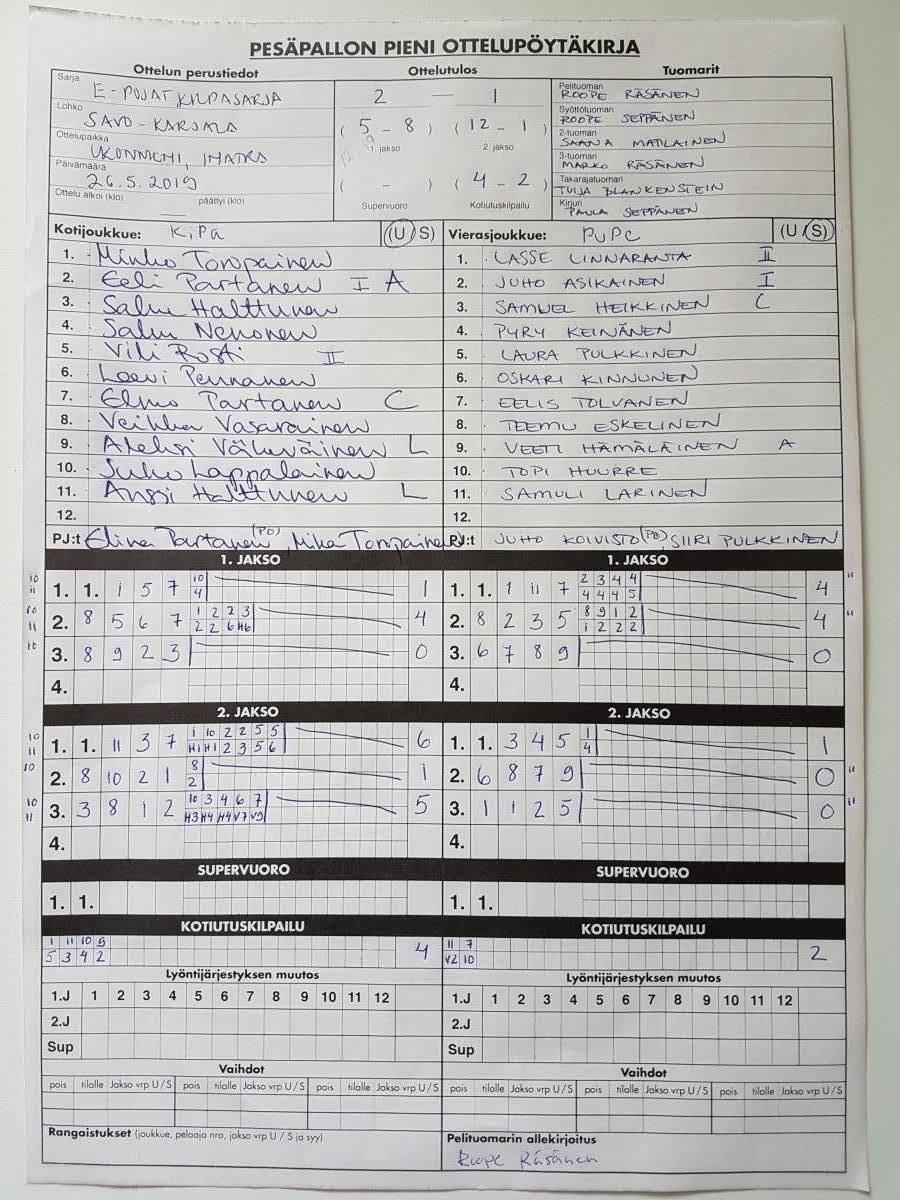 PESÄPALLON PIENI OTTELUPÖYTÄKIRJA
Ottelun perustiedot Ottelutulos Tuomarit
Sarja E-POJAT KILPASARJA
Lohko SAVO-KARJALA
Ottelupaikka UKONNIEMI, IMATRA
Päivämäärä 26.5.2019
Ottelu alkoi (klo) päättyi (klo)
2 — 1
( 5 - 8 ) ( 12 - 1 )
1. jakso 2. jakso
( - ) ( 4 - 2 )
Supervuoro Kotiutuskilpailu
Pelituomari ROOPE RÄSÄNEN
Syöttötuomari ROOPE SEPPÄNEN
2-tuomari SAANA MATILAINEN
3-tuomari MARKO RÄSÄNEN
Takarajatuomari TUIJA BLANKENSTEIN
Kirjuri PAULA SEPPÄNEN
Kotijoukkue: KiPa (U / S)
1. Minho Toropainen
2. Eeli Partanen I A
3. Salu Halttunen
4. Salu Nenonen
5. Vili Rosti II
6. Leevi Pennanen
7. Elmo Partanen C
8. Veikka Vasarainen
9. Aleksi Väkeväinen L
10. Juho Lappalainen
11. Anssi Halttunen L
12.
PJ:t Elina Partanen (PO), Mika Toropainen
Vierasjoukkue: PuPe (U / S)
1. LASSE LINNARANTA II
2. JUHO ASIKAINEN I
3. SAMUEL HEIKKINEN C
4. PYRY KEINÄNEN
5. LAURA PULKKINEN
6. OSKARI KINNUNEN
7. EELIS TOLVANEN
8. TEEMU ESKELINEN
9. VEETI HÄMÄLÄINEN A
10. TOPI HUURRE
11. SAMULI LARINEN
12.
PJ:t JUHO KOIVISTO (PO), SIIRI PULKKINEN
1. JAKSO
10 11 1. 1. 1 5 7 10 1
4
10 11 2. 8 5 6 7 1 2 2 3 4
2 2 6 H6
10 3. 8 9 2 3 0
4.
1. JAKSO
1. 1. 1 11 7 2 3 4 4 4 "
4 4 4 5
2. 8 2 3 5 8 9 1 2 4 "
1 2 2 2
3. 6 7 8 9 0
4.
2. JAKSO
10 11 1. 1. 11 3 7 1 10 2 2 5 5 6
H1 H1 2 3 5 6
10 2. 8 10 2 1 8 1
2
10 11 3. 3 8 1 2 10 3 4 6 7 5
H3 H4 H4 V7 V9
4.
2. JAKSO
1. 1. 3 4 5 1 1
4
2. 6 8 7 9 0 "
3. 1 1 2 5 0 "
4.
SUPERVUORO
1. 1.
SUPERVUORO
1. 1.
KOTIUTUSKILPAILU
1 11 10 9 4
5 3 4 2
KOTIUTUSKILPAILU
11 7 2
V2 10
Lyöntijärjestyksen muutos
1.J 1 2 3 4 5 6 7 8 9 10 11 12
2.J
Sup
Lyöntijärjestyksen muutos
1.J 1 2 3 4 5 6 7 8 9 10 11 12
2.J
Sup
Vaihdot
pois tilalle Jakso vrp U / S pois tilalle Jakso vrp U / S pois tilalle Jakso vrp U / S
Vaihdot
pois tilalle Jakso vrp U / S pois tilalle Jakso vrp U / S pois tilalle Jakso vrp U / S
Rangaistukset (joukkue, pelaaja nro, jakso vrp U / S ja syy)
Pelituomarin allekirjoitus
Roope Räsänen